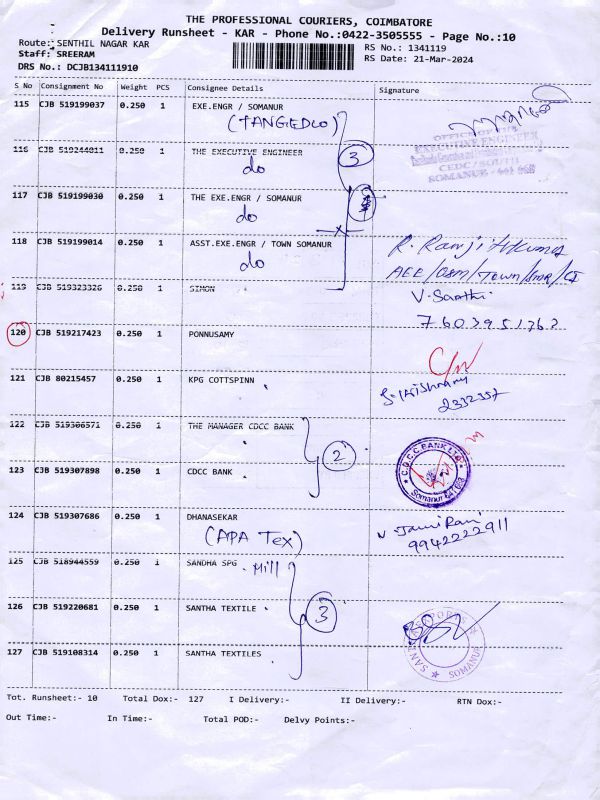 THE PROFESSIONAL COURIERS, COIMBATORE
Delivery Runsheet - KAR - Phone No.:0422-3505555 - Page No.:10
Route: SENTHIL NAGAR KAR
Staff: SREERAM
DRS No.: DCJB134111910
RS No.: 1341119
RS Date: 21-Mar-2024
S No Consignment No Weight PCS Consignee Details Signature
115 CJB 519199037 0.250 1 EXE.ENGR / SOMANUR
(TANGEDCO)
OFFICE OF THE
EXECUTIVE ENGINEER
CEDC/SOUTH
SOMANUR - 641 668
116 CJB 519244011 0.250 1 THE EXECUTIVE ENGINEER
do
3
117 CJB 519199030 0.250 1 THE EXE.ENGR / SOMANUR
do
118 CJB 519199014 0.250 1 ASST.EXE.ENGR / TOWN SOMANUR
do
R. Ranjithkumar
AEE/O&M/Town/SMR/
119 CJB 519323326 0.250 1 SIMON
V. Santhi
7603951762
120 CJB 519217423 0.250 1 PONNUSAMY
121 CJB 80215457 0.250 1 KPG COTTSPINN
2332357
122 CJB 519306571 0.250 1 THE MANAGER CDCC BANK
2
C.D.C.C BANK LTD
Somanur 641 668
123 CJB 519307898 0.250 1 CDCC BANK
124 CJB 519307686 0.250 1 DHANASEKAR
(APA Tex)
9942222911
125 CJB 518944559 0.250 1 SANDHA SPG . Mill
126 CJB 519220681 0.250 1 SANTHA TEXTILE
3
SOMANUR
127 CJB 519108314 0.250 1 SANTHA TEXTILES
Tot. Runsheet:- 10 Total Dox:- 127 I Delivery:- II Delivery:- RTN Dox:-
Out Time:- In Time:- Total POD:- Delvy Points:-